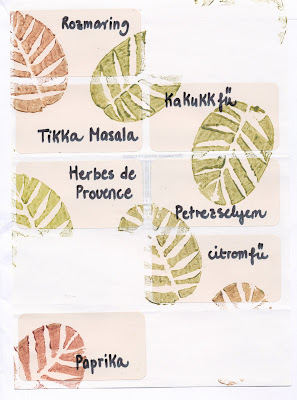 Rozmaring
Kakukkfű
Tikka Masala
Herbes de
Provence
Petrezselyem
citromfű
Paprika